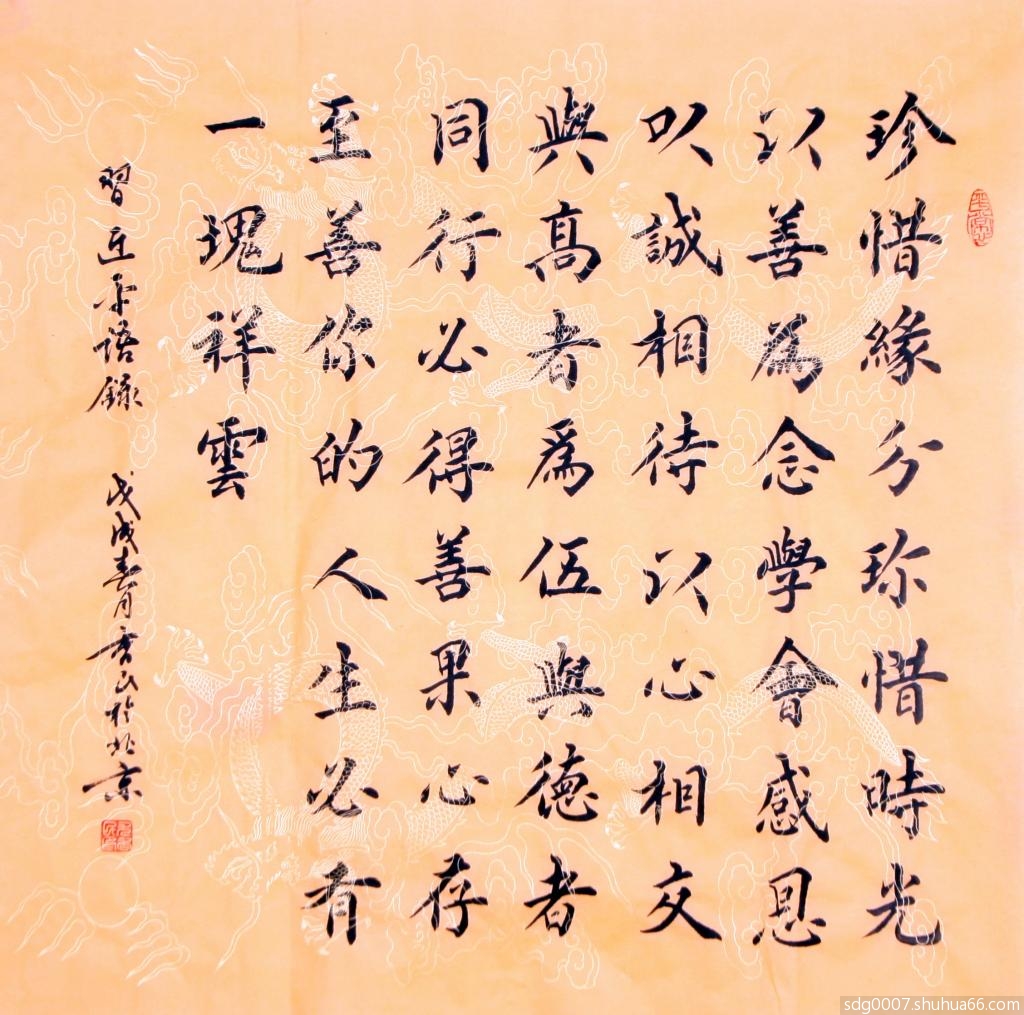 珍惜緣分珎惜時光
以善為念學會感恩
以誠相待以心相交
與髙者爲伍與德者
同行必得善果心存
至善你的人生必有
一塊祥雲
習近平語錄 戊戌春月 於北京
sdg0007.shuhua66.com